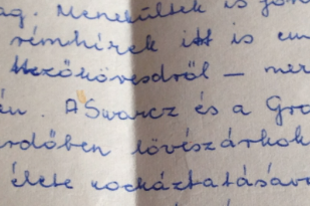 ag. Menekültek is jön
rémhírek itt is em
Mezőkövesdről — mer
án. A Swarcz és a Gro
rdőben lövészárkok
élete kockáztatásáv